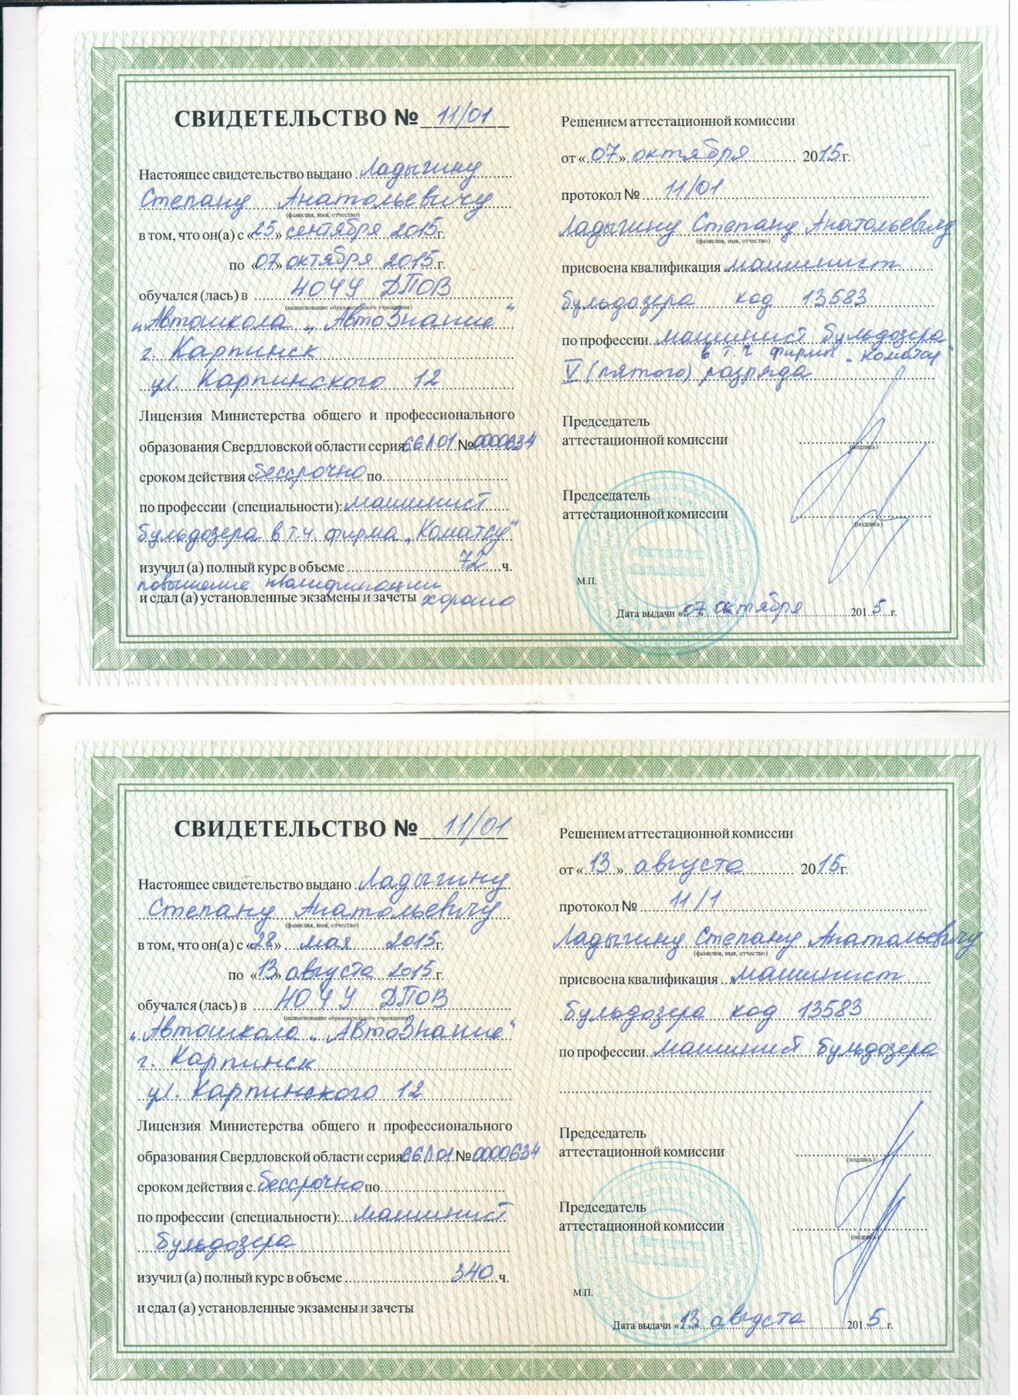 СВИДЕТЕЛЬСТВО № 11/01
Настоящее свидетельство выдано Ладыгину
Степану Анатольевичу
(фамилия, имя, отчество)
в том, что он(а) с «25» сентября 2015г.
по «07» октября 2015г.
обучался (лась) в НОЧУ ДПОВ
(наименование образовательного учреждения)
"Автошкола "АвтоЗнание"
г. Карпинск
ул. Карпинского 12
Лицензия Министерства общего и профессионального
образования Свердловской области серия 66Л01 № 0000634
сроком действия с бессрочно по
по профессии (специальности): машинист
бульдозера в т.ч. фирма "Коматсу"
изучил (а) полный курс в объеме 72 ч.
повышение квалификации
и сдал (а) установленные экзамены и зачеты хорошо
Решением аттестационной комиссии
от «07» октября 2015г.
протокол № 11/01
Ладыгину Степану Анатольевичу
(фамилия, имя, отчество)
присвоена квалификация машинист
бульдозера код 13583
по профессии машинист бульдозера
в т.ч фирма
V (пятого) разряда
Председатель
аттестационной комиссии
(подпись)
Председатель
аттестационной комиссии
(подпись)
М.П.
Дата выдачи «07 октября 2015г.
СВИДЕТЕЛЬСТВО № 11/01
Настоящее свидетельство выдано Ладыгину
Степану Анатольевичу
(фамилия, имя, отчество)
в том, что он(а) с «28» мая 2015г.
по «13» августа 2015г.
обучался (лась) в НОЧУ ДПОВ
(наименование образовательного учреждения)
"Автошкола "АвтоЗнание"
г. Карпинск
ул. Карпинского 12
Лицензия Министерства общего и профессионального
образования Свердловской области серия 66Л01 № 0000634
сроком действия с бессрочно по
по профессии (специальности): машинист
бульдозера
изучил (а) полный курс в объеме 340 ч.
и сдал (а) установленные экзамены и зачеты
Решением аттестационной комиссии
от «13» августа 2015г.
протокол № 11/1
Ладыгину Степану Анатольевичу
(фамилия, имя, отчество)
присвоена квалификация машинист
бульдозера код 13583
по профессии машинист бульдозера
Председатель
аттестационной комиссии
(подпись)
Председатель
аттестационной комиссии
(подпись)
М.П.
Дата выдачи «13 августа 2015г.